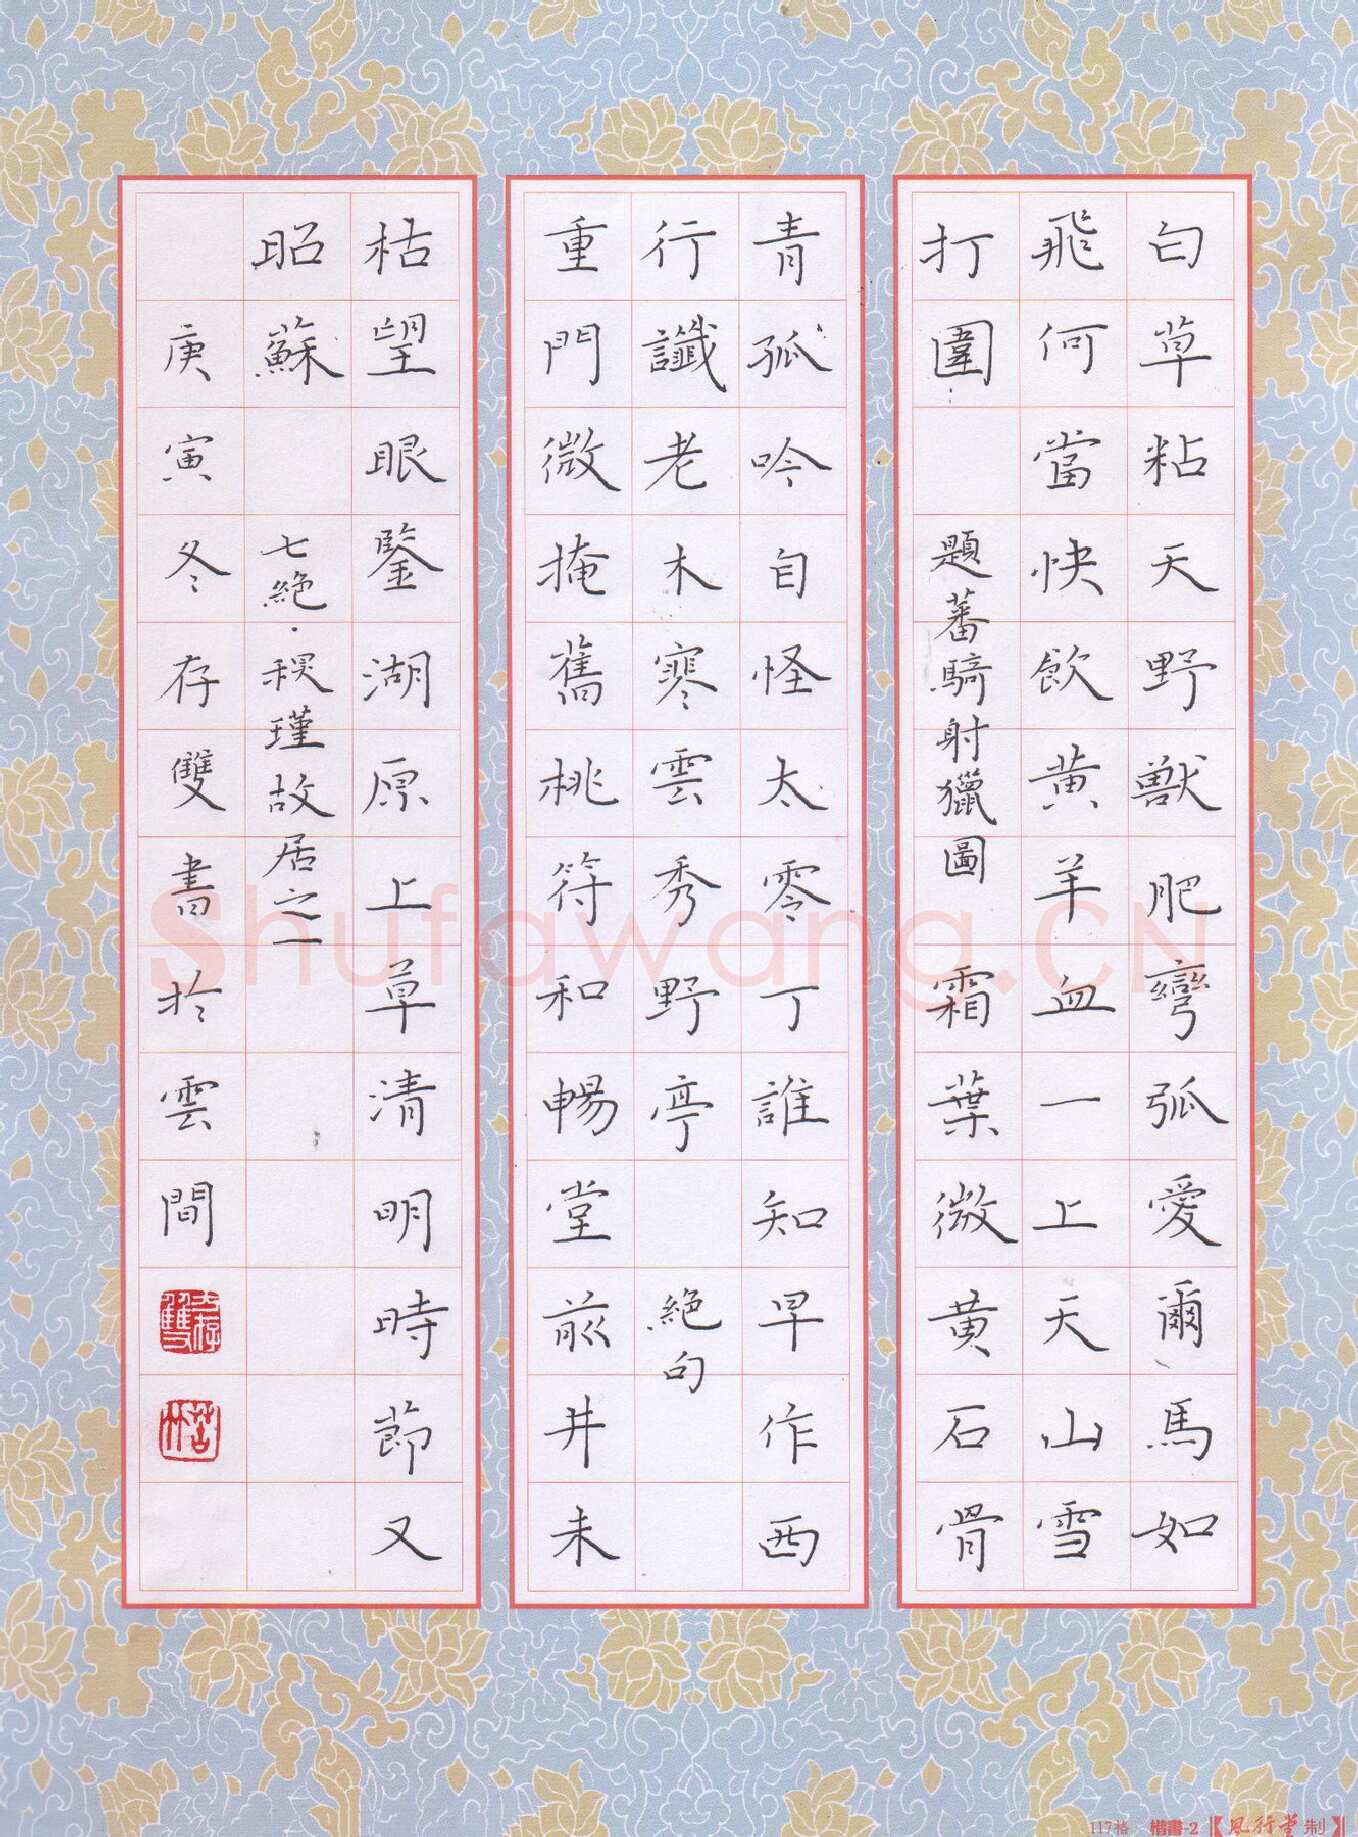 白草粘天野獸肥彎弧愛爾馬如
飛何當快飲黄羊血一上天山雪
打圍 題蕃騎射獵圖 霜葉微黄石骨
青孤吟自怪太零丁誰知早作西
行讖老木寒雲秀野亭 絶句
重門微掩舊桃符和暢堂前井未
枯望眼鑒湖原上草清明時節又
昭蘇 七絶·秋瑾故居之一
庚寅冬存雙書於雲間
Shufawang.CN
117格 楷書-2【風行堂制】